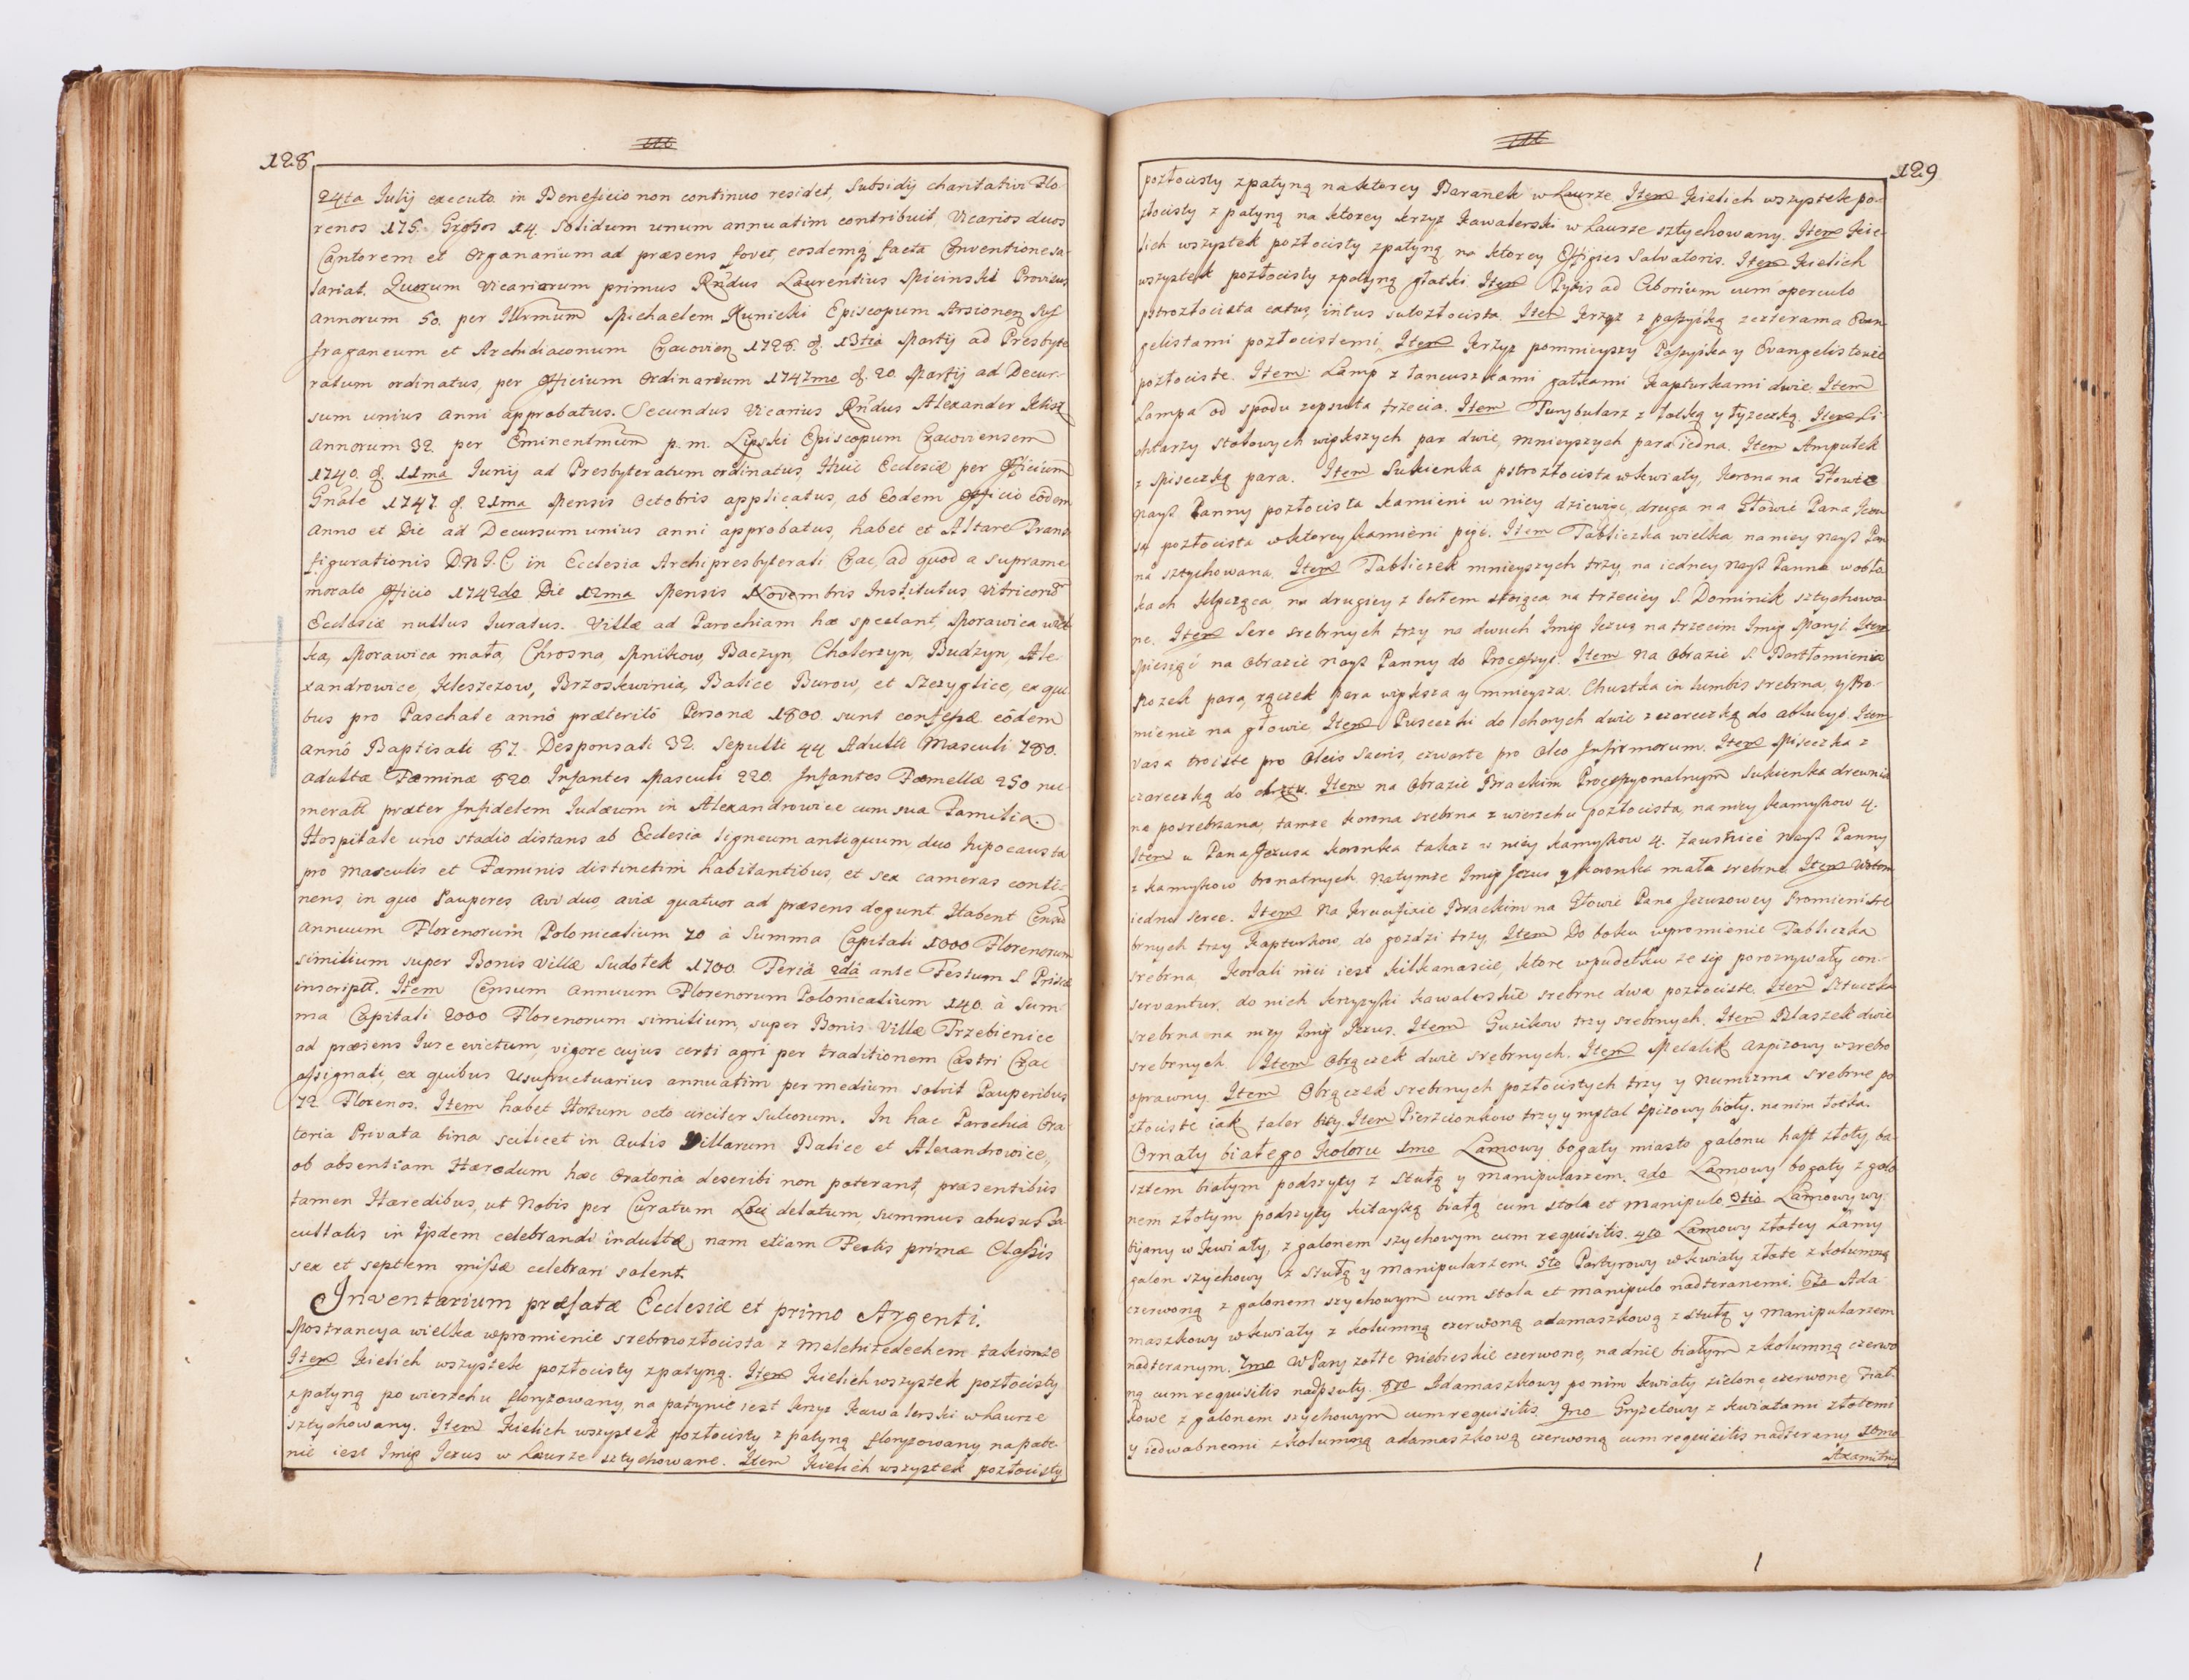 128
24ta Julij executo in Beneficio non continuo residet, Subsidij charitativi Flo-
renos 175. Grosos 14. Solidum unum annuatim contribuit, Vicarios duos
Cantorem et Organarium ad præsens fovet, eosdemq facta Conventione sa-
lariat. Quorum Vicariorum primus Rndus Laurentius Micinski Provisus
annorum 50. per Illrmum Michaelem Kunicki Episcopum Arsionen Suf
fraganeum et Archidiaconum Cracovien 1728. d. 13tia Martij ad Presbyte
ratum ordinatus, per Officium Ordinarium 1747mo d. 20. Martij ad Decur-
sum unius anni approbatus. Secundus Vicarius Rndus Alexander
annorum 32. per Eminentmum p. m. Lipski Episcopum Cracoviensem
1740. d. 11ma Junij ad Presbyteratum ordinatus, Huic Ecclesiæ per Officium
Gnale 1747. d. 21ma Mensis Octobris applicatus, ab Eodem Officio eodem
anno et Die ad Decursum unius anni approbatus, habet et Altare Trans
figurationis D.N.J.C. in Ecclesia Archipresbyterali Crac, ad quod a supramè
morato Officio 1742do Die 12ma Mensis Novembris Institutus, Vitricorum
Ecclesiæ nullus Juratus. Villæ ad Parochiam hæ spectant, Morawica wiel
ka, Morawica mała, Chrosna, Mnikow, Baczyn, Cholerzyn, Budzyn, Ale-
xandrowice, Kleszczow, Brzoskwinia, Balice Burow, et Szczyglice, ex qui
bus pro Paschate annô præteritô Personæ 1800. sunt confessæ eôdem
annô Baptisati 87. Desponsati 32. Sepulti 44 Adulti Masculi 780.
adultæ Fæminæ 820. Infantes Masculi 220. Infantes Fæmellæ 250 nu-
merati præter Infidelem Judæum in Alexandrowice cum sua Familia.
Hospitale uno stadio distans ab Ecclesia ligneum antiquum duo hipocausta
pro Masculis et Fæminis distinctim habitantibus, et sex cameras conti-
nens, in quo Pauperes Avi duo, aviæ quatuor ad præsens degunt. Habent Censum
annuum Florenorum Polonicalium 70 à Summa Capitali 1000 Florenorum
similium super Bonis Villæ Sudołek 1700. Feriâ 2dâ ante Festum S. Priscæ
inscriptt. Item Censum annuum Florenorum Polonicalium 140. à Sum-
ma Capitali 2000 Florenorum similium, super Bonis Villæ Trzebienice
ad præsens Jure evictum, vigore cujus certi agri per traditionem Castri Crac
assignati, ex quibus Usufructuarius annuatim per medium solvit Pauperibus
72 Florenos. Item habet Hortum octo circiter Sulcorum. In hac Parochia Ora-
toria Privata bina scilicet in Aulis Villarum Balice et Alexandrowice,
ob absentiam Hæredum hæc Oratoria describi non poterant, præsentibus
tamen Hæredibus, ut Nobis per Curatum Loci delatum, summus abusus Fa-
cultatis in ijsdem celebrandi indultæ, nam etiam Festis primæ Classis
sex et septem missæ celebrari solent.
Inventarium præfatæ Ecclesiæ et primo Argenti.
Mostrancya wielka wpromienie srebrnozłocista z Melchitedechem takimze
Item Kielich wszystek pozłocisty zpatyną. Item Kielich wszystek pozłocisty
zpatyną po wierzchu floryzowany, na patynie iest Krzyz Kawalerski w Laurze
sztychowany. Item Kielich wszystek pozłocisty z patyną floryzowany na paty-
nie iest Imię Jezus w Laurze sztychowane. Item Kielich wszystek pozłocisty
129
pozłocisty zpatyną na ktorey Baranek w Laurze. Item Kielich wszystek po-
złocisty z patyną na ktorey krzyz Kawalerski w Laurze sztychowany. Item Kie-
lich wszystek pozłocisty zpatyną, na ktorey Effigies Salvatoris. Item Kielich
wszystek pozłocisty zpatyną głatki. Item Pyxis ad Ciborium cum operculo
pstrozłocista extus, intus sutozłocista. Item Krzyz z passyiką zczterama Ewan
gelistami pozłocistemi. Item Krzyz pomnieyszy Passyika y Evangelistowie
pozłociste. Item: Lamp z łancuszkami gałkami Kapturkami dwie. Item
Lampa od spodu zepsuta trzecia. Item Turybularz z łotką y łyzeczką. Item Li-
chtarzy stołowych większych par dwie, mnieyszych para iedna. Item Ampułek
z Miseczką para. Item Sukienka pstrozłocista w kwiaty, Korona na Głowie
Nayś Panny pozłocista kamieni w niey dziewięc, druga na Głowie Pana Jezu
sa pozłocista w ktorey kamieni pięc. Item Tabliczka wielka, na niey Nayś Pan
na sztychowana, Item Tabliczek mnieyszych trzy, na iedney Nayś Panna w obło
kach klęcząca, na drugiey z berłem stoiąca na trzeciey S. Dominik sztychowa-
ne. Item Serc srebrnych trzy na dwuch Imię Jezus na trzecim Imię Maryi. Item
Miesiąc na Obrazie Nayś Panny do Processyi. Item Na Obrazie S. Bartłomieia
Nozek para, rączek para większa y mnieysza. Chustka in lumbis srebrna, y Pro-
mienie na głowie, Item Puszczki do chorych dwie z czareczką do ablucyi. Item
Vasa troiste pro Oleis Sacris, czwarte pro Oleo Infirmorum. Item Miseczka z
czareczką do. Item na Obrazie Brackim Processyonalnym Sukienka drewnia
na posrebrzana, tamze korona srebrna z wierzchu pozłocista, na niey kamyskow 4.
Item u Pana Jezusa koronka takaz w niey kamyskow 4. Zausnice Nayś Panny
z kamyskow Granatnych Natymze Imię Jezus y koronka mała srebrna. Item Wotum
iedno Serce. Item Na Krucifixie Brackim na Głowie Pana Jezusowey Promieni sre
brnych trzy Kapturkow, do gozdzi trzy, Item Do boku wpromienie Tabliczka
srebrna, Korali nici iest kilkanascie, ktore w pudełku ze się poroznywały con-
servantur, do nich krzyzyki kawalerskie srebrne dwa pozłociste. Item Sztuczka
srebrna na niey Imię Jezus. Item Guzikow trzy srebrnych. Item Blaszek dwie
srebrnych. Item Obrączek dwie srebrnych. Item Medalik aspisowy wsrebro
oprawny. Item Obrączek srebrnych pozłocistych trzy y numizma srebrne po
złociste iak taler bity. Item Pierzcionkow trzy y mętal spizowy biały. na nim łotka.
Ornaty białego Koloru 1mo Lamowy bogaty miasto galonu haft złoty ba-
sztem białym podszyty z Stułą y Manipularzem. 2do Lamowy bogaty z galo-
nem złotym podszyty kitayką białą cum stola et manipulo. 3tio Lamowy wy-
tijany w Kwiaty, z galonem szychowym cum requisitis. 4to Lamowy złotey Lamy
galon szychowy z stułą y Manipularzem. 5to Partyrowy w kwiaty złote z kolumną
czerwoną z galonem szychowym cum stola et manipulo nadteranemi. 6to Ada
maszkowy w kwiaty z kolumną czerwoną adamaszkową z stułą y Manipularzem
nadteranym. 7mo W Pasy zołte niebieskie czerwone, na dnie białym z kolumną czerwo
ną cum requisitis nadpsuty. 8vo Adamaszkowy po nim kwiaty zielone czerwone Fiał-
kowe z galonem szychowym cum requisitis. 9no Gryzetowy z kwiatami złotemi
y iedwabnemi z kolumną adamaszkową czerwoną cum requisitis nadterany 10mo
Axamitny